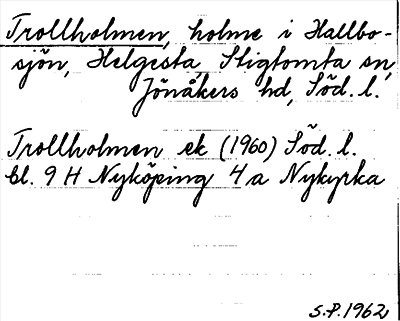 Trollholmen, holme i Hallbo-
sjön, Helgesta, Stigtomta sn,
Jönåkers hd, Söd. l.
Trollholmen ek (1960) Söd. l.
bl. 9 H Nyköping 4 a Nykyrka
S.P. 1962